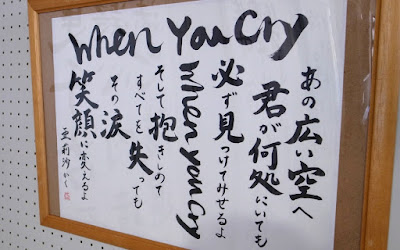 When You Cry
あの広い空へ
君が何処にいても
必ず見つけてみせるよ
When you Cry
そして抱きしめて
すべてを失っても
その涙
笑顔に変えるよ
亜莉沙かく